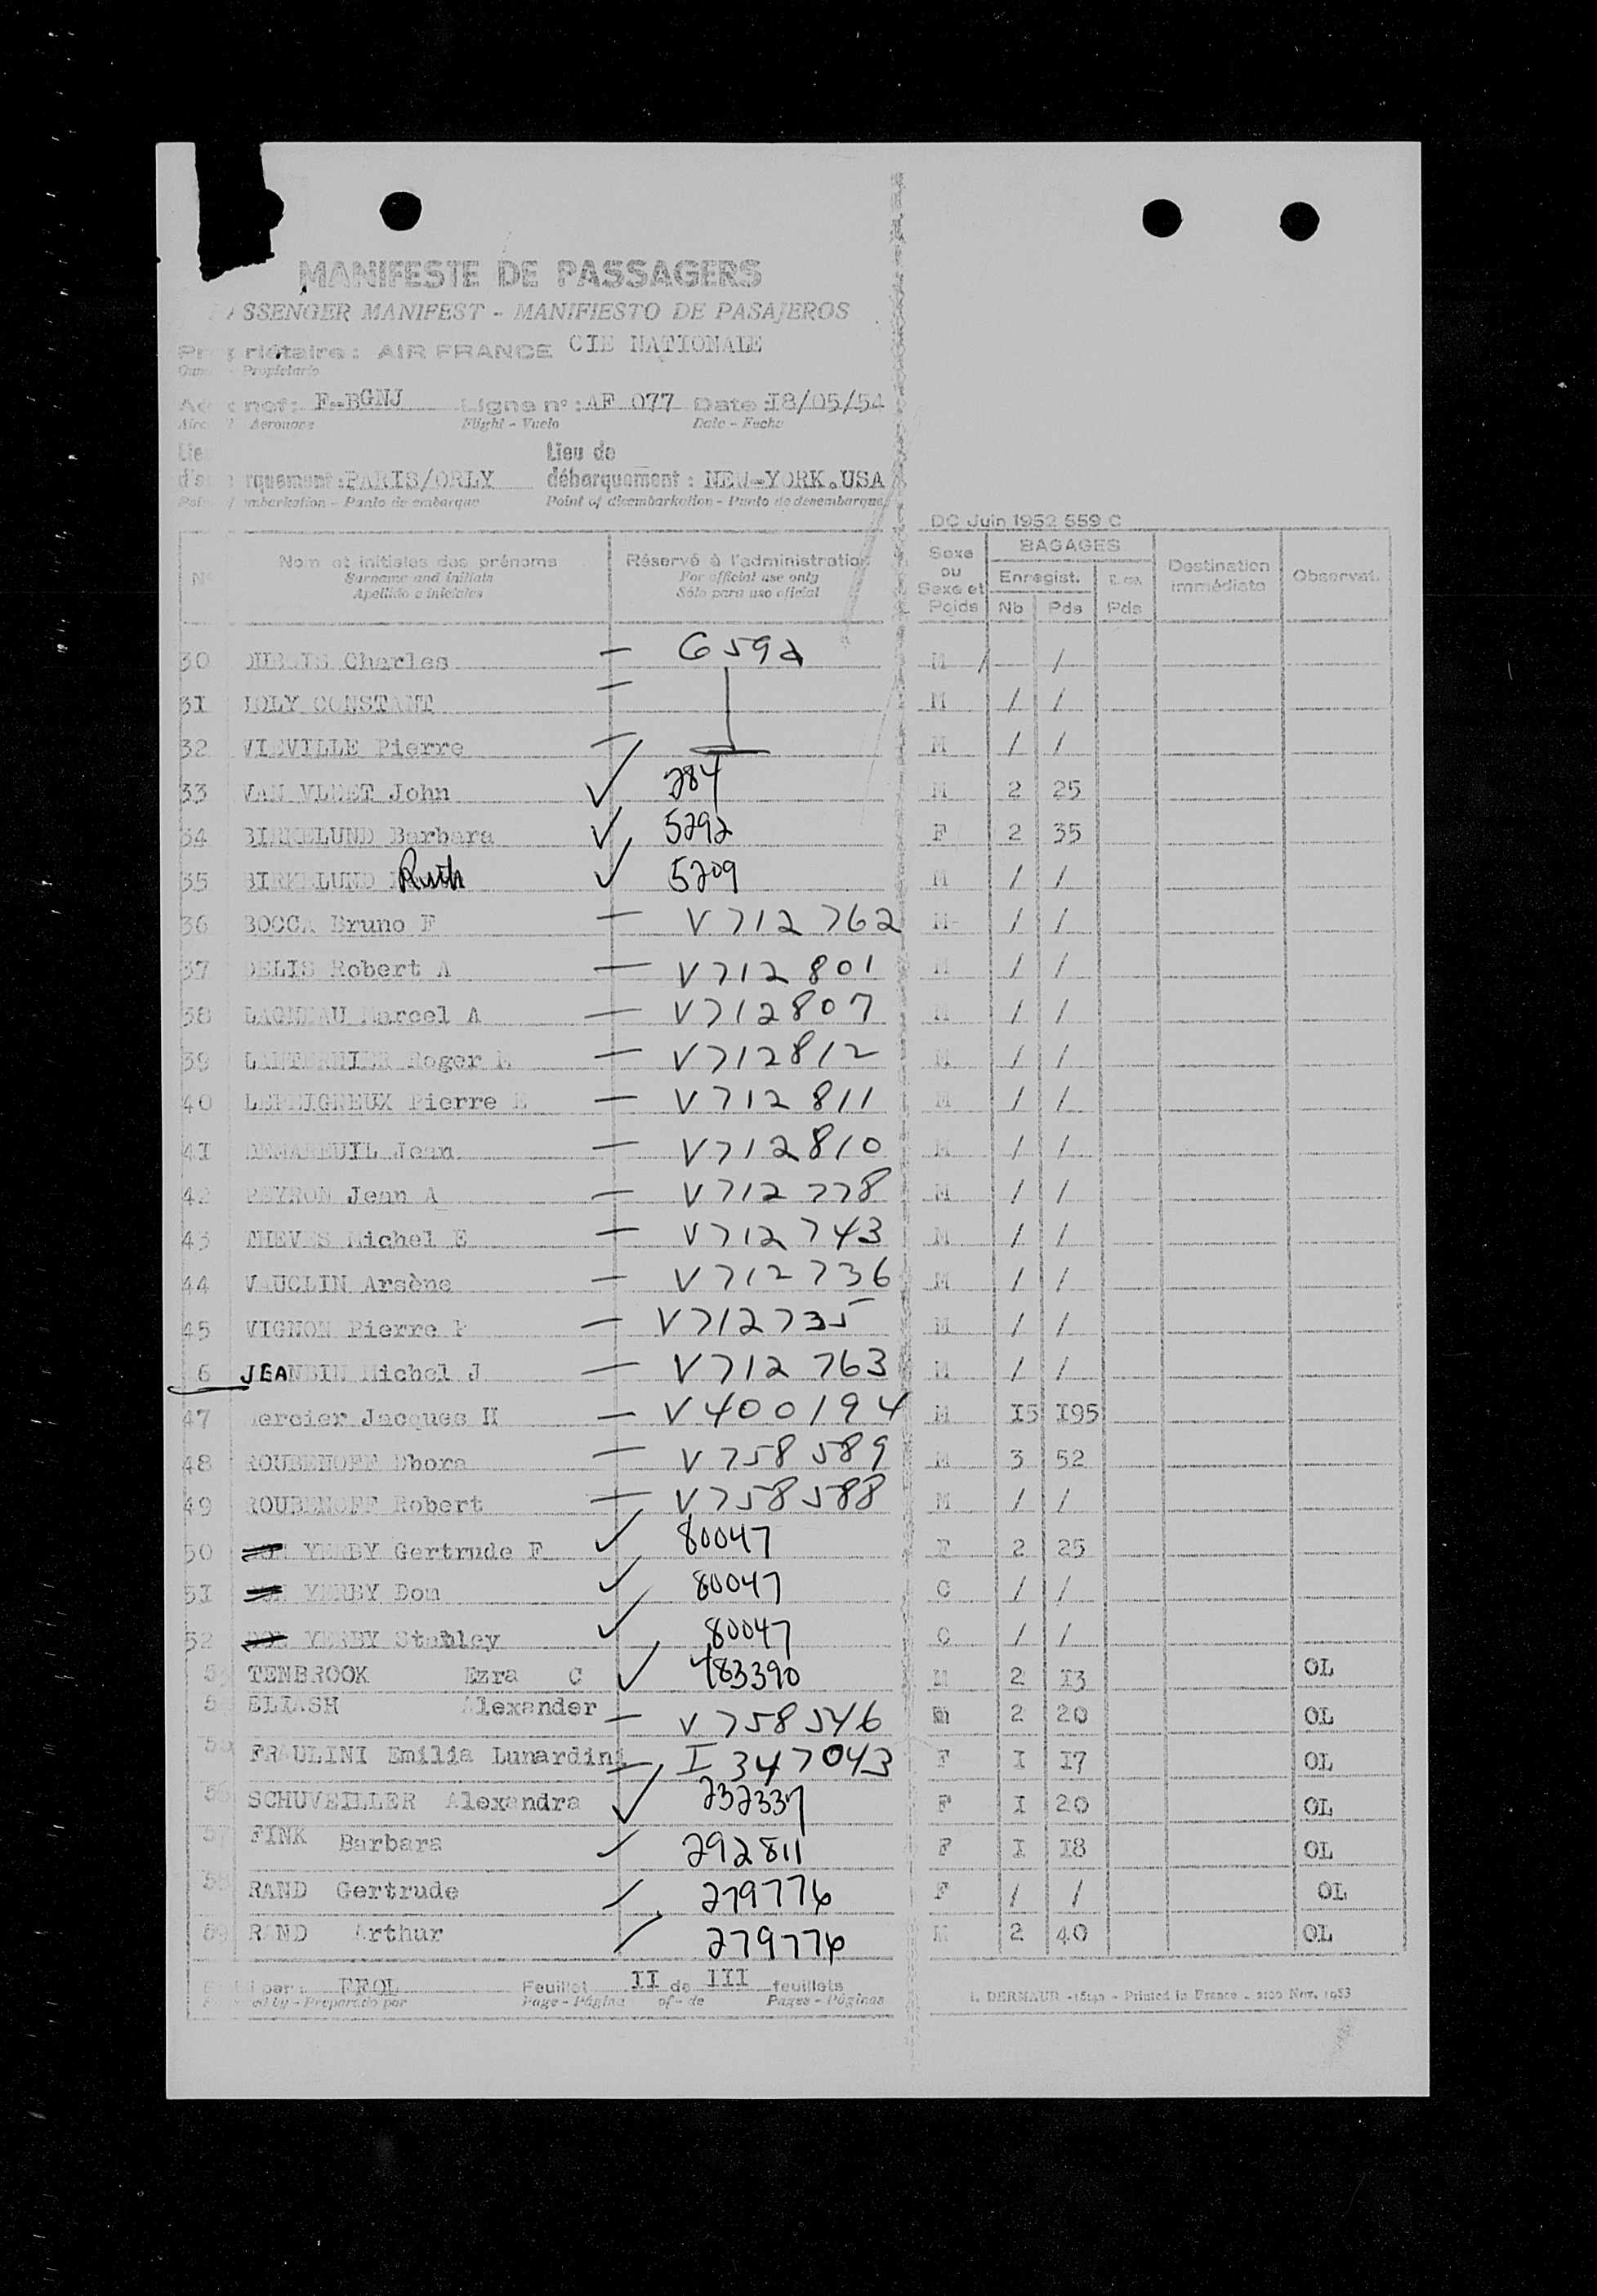 MANIFESTE DE PASSAGERS
SSENGER MANIFEST - MANIFIESTO DE PASAJEROS
Propriétaire : AIR FRANCE CIE NATIONALE
- Propietario
nef : F-BGNJ Ligne n° : AF 077 Date : I8/05/54
Aeronave Flight - Vuelo Date - Fecha
Lieu de
rquement : PARIS/ORLY débarquement : NEW-YORK.USA
embarkation - Punto de embarque Point of disembarkation - Punto de desembarque
DC Juin 1952 559 C
Nom et initiales des prénoms
Surname and initials
Apellido e iniciales
Réservé à l'administration
For official use only
Sólo para uso oficial
Sexe ou Sexe et Poids
BAGAGES
Enregist.
Nb Pds Pds
Destination immédiate
Observat.
30 Charles — 6592 M / /
3I JOLY CONSTANT — M / /
32 VIEVILLE Pierre — M / /
33 VAN VLEET John ✓ 284 M 2 25
34 BIRKELUND Barbara ✓ 5292 F 2 35
35 BIRKELUND Ruth ✓ 5209 M / /
36 BOCCA Bruno F — V712762 M- / /
37 DELIS Robert A — V712801 M / /
38 LAGNEAU Marcel A — V712807 M / /
39 Roger — V712812 M / /
40 Pierre — V712811 M / /
4I Jean — V712810 M / /
42 PEYRON Jean A — V712778 M / /
43 THEVES Michel E — V712743 M / /
44 VAUCLIN Arsène — V712736 M / /
45 VIGNON Pierre P — V712735 M / /
6 Michel J — V712763 M / /
47 Mercier Jacques H — V400194 M I5 I95
48 ROUBENOFF Dhora — V758589 M 3 52
49 ROUBENOFF Robert — V758588 M / /
50 YERBY Gertrude F ✓ 80047 F 2 25
5I YERBY Don ✓ 80047 C / /
52 YERBY Stanley ✓ 80047 C / /
TENBROOK Ezra C ✓ 483390 M 2 I3 OL
ELIASH Alexander — V758546 M 2 20 OL
FRAULINI Emilia Lunardini — I347043 F I I7 OL
56 SCHUVEILLER Alexandra ✓ 232337 F I 20 OL
57 FINK Barbara ✓ 292811 F I I8 OL
58 RAND Gertrude ✓ 279776 F / / OL
59 RAND Arthur ✓ 279776 M 2 40 OL
par : FFOL Feuillet II de III feuillets
ed by - Preparado por Page - Página of - de Pages - Páginas
DERMAUR - Printed in France - Nov. 1953